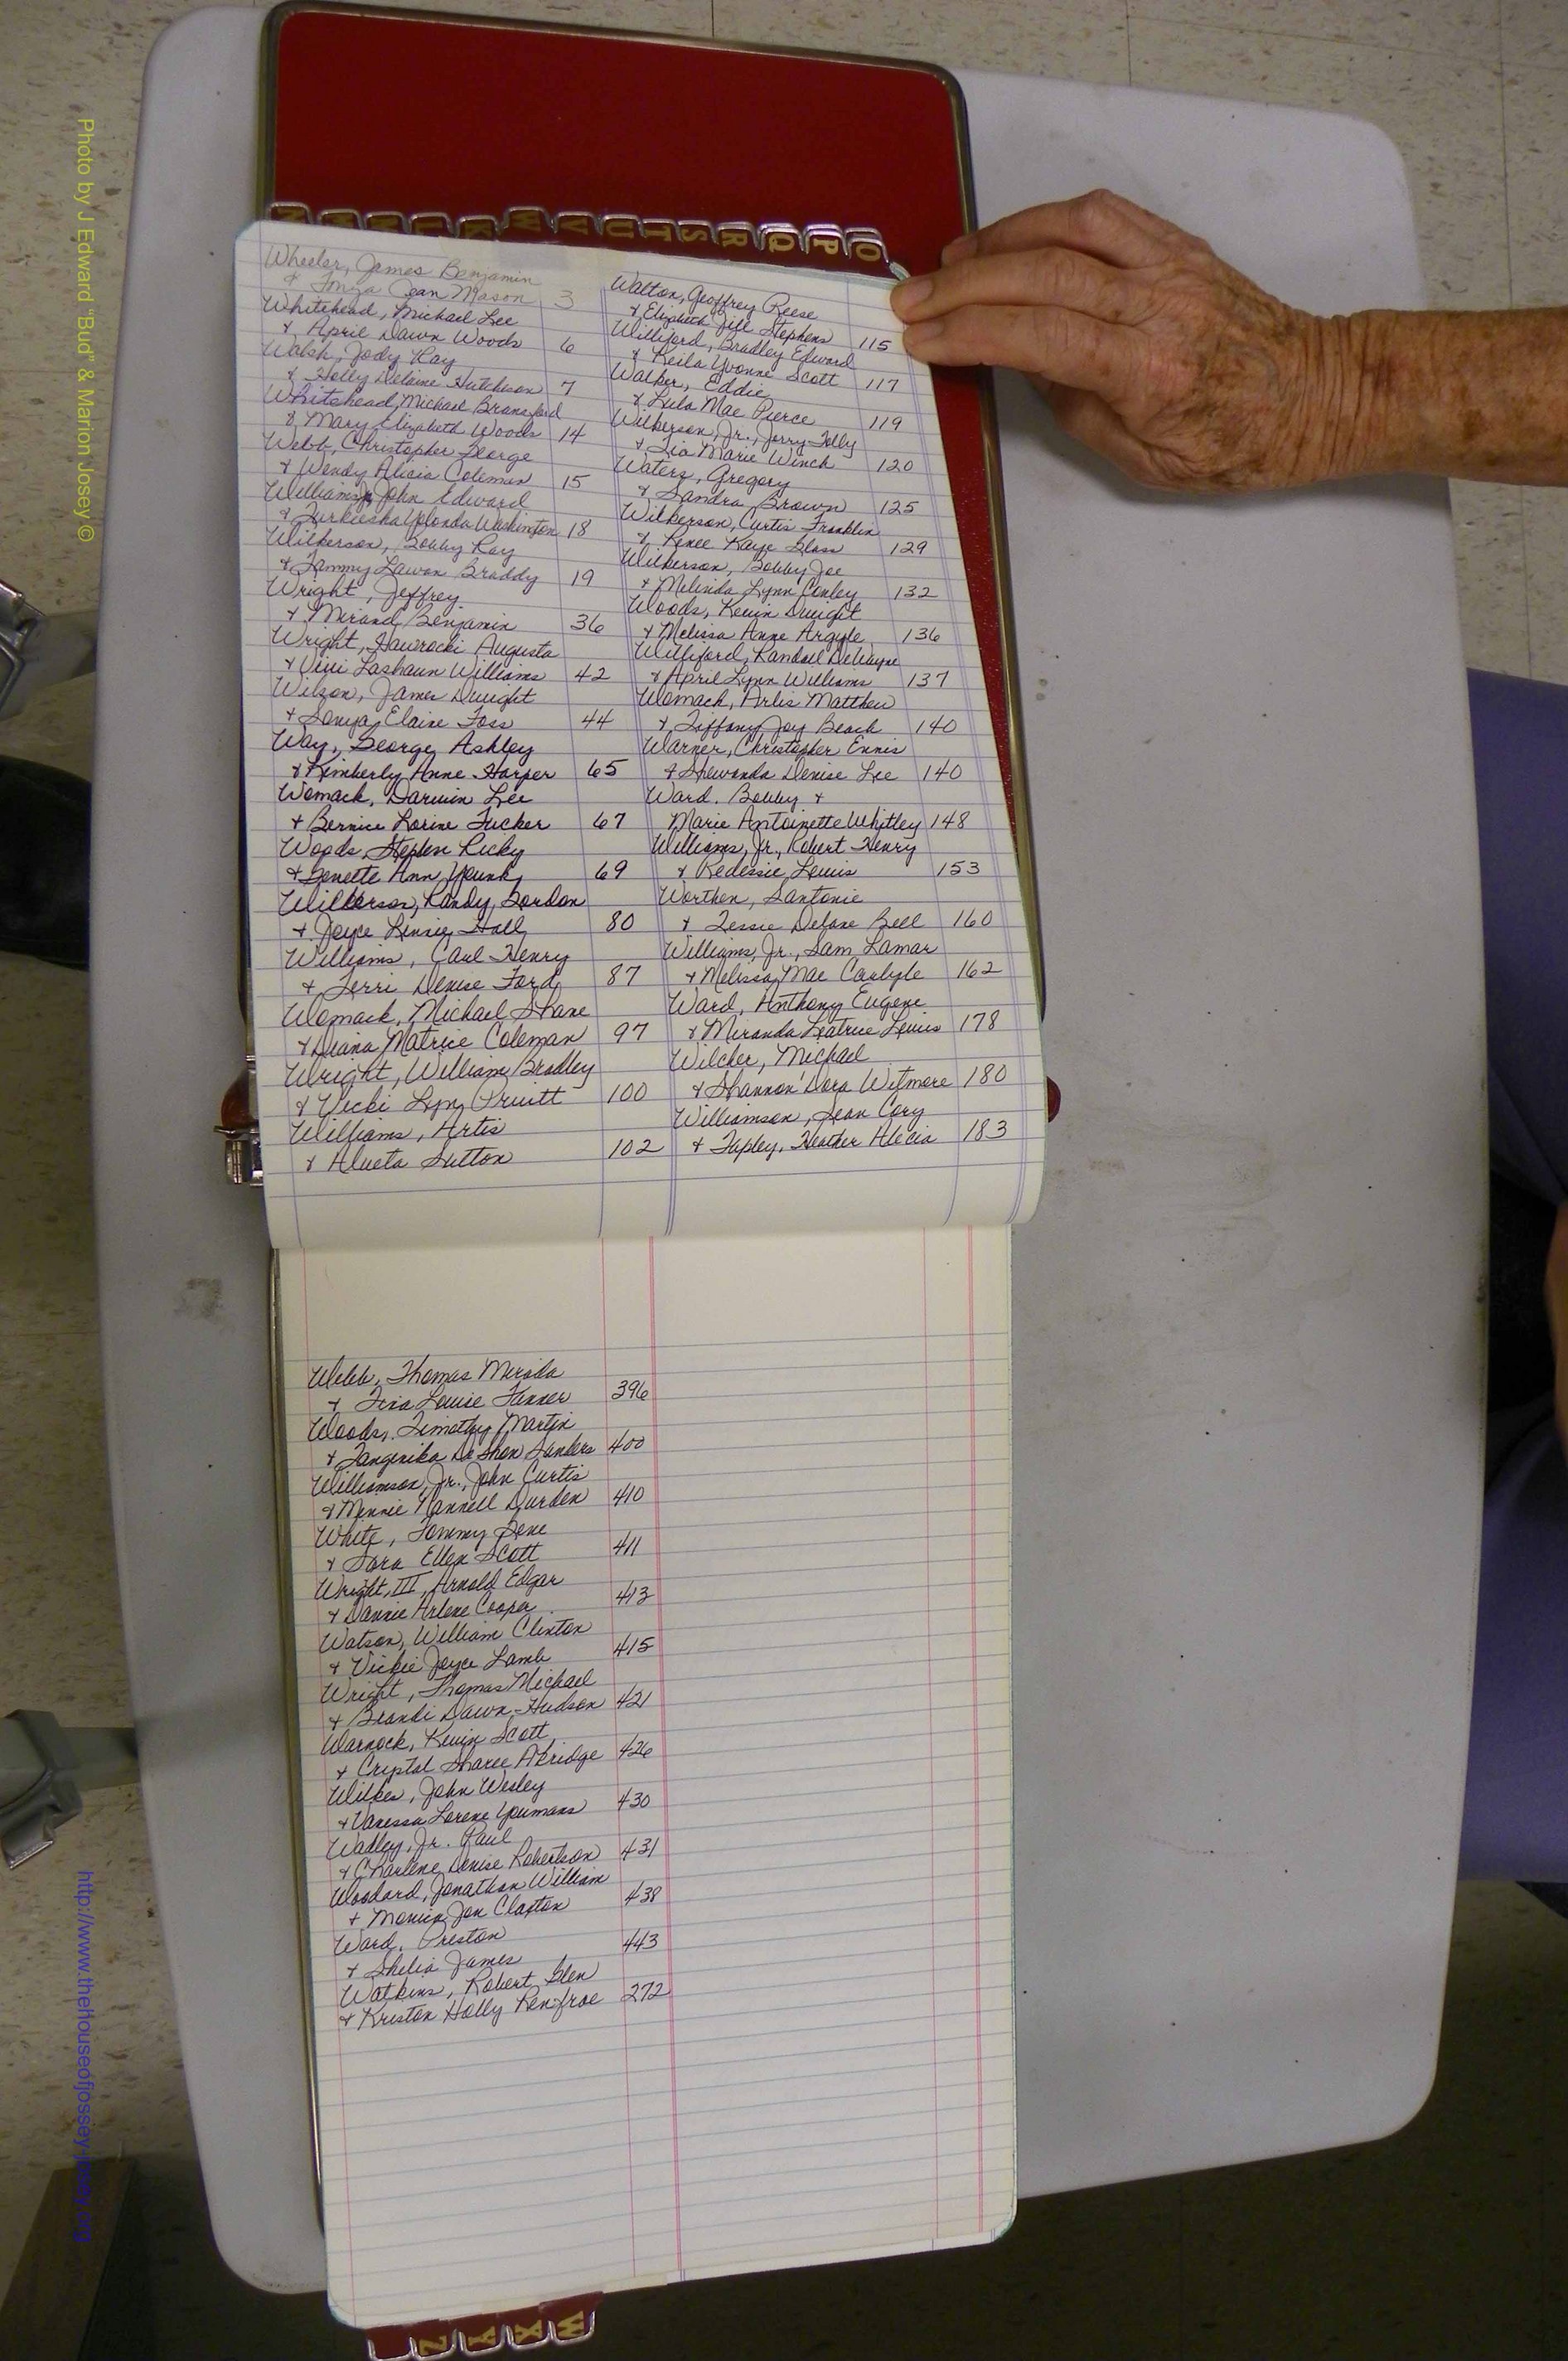 Photo by J Edward "Bud" & Marion Josey ©
http://www.thehouseofjossey-josey.org
O
P
Q
R
S
T
U
V
W
Wheeler, James Benjamin
& Tonya Jean Mason 3
Whitehead, Michael Lee
& April Dawn Woods 6
Walsh, Jody Ray
& Holly Delaine Hutcheson 7
Whitehead, Michael Bransford
& Mary Elizabeth Woods 14
Webb, Christopher George
& Wendy Alicia Coleman 15
Williams, John Edward
& Yolonda Washington 18
Wilkerson, Bobby Ray
& Tammy Lawon Braddy 19
Wright, Jeffrey
& Mirand Benjamin 36
Wright, Hawrocki Augusta
& Vivi Lashaun Williams 42
Wilson, James Dwight
& Sonya Elaine Foss 44
Way, George Ashley
& Kimberly Anne Harper 65
Womack, Darwin Lee
& Bernice Lorine Tucker 67
Woods, Stephen Ricky
& Ann Young 69
Wilkerson, Randy Gordon
& Joyce Hall 80
Williams, Carl Henry
& Terri Denise Ford 87
Womack, Michael Shane
& Diana Matrice Coleman 97
Wright, William Bradley
& Vicki Lyn Pruitt 100
Williams, Artis
& Alveta Sutton 102
Walton, Geoffrey Reese
& Elizabeth Jill Stephens 115
Williford, Bradley Edward
& Keila Yvonne Scott 117
Walker, Eddie
& Lula Mae Pierce 119
Wilkerson, Jr., Jerry Tolly
& Tia Marie Winch 120
Waters, Gregory
& Sandra Brown 125
Wilkerson, Curtis Franklin
& Renee Kaye Glass 129
Wilkerson, Bobby Joe
& Melinda Lynn Conley 132
Woods, Kevin Dwight
& Melissa Anne Argyle 136
Williford, Randall DeWayne
& April Lynn Williams 137
Womack, Arlis Matthew
& Tiffany Joy Beach 140
Warner, Christopher Ennis
& Shewanda Denise Lee 140
Ward, Bobby &
Marie Antoinette Whitley 148
Williams, Jr., Robert Henry
& Redessie Lewis 153
Worthen, Santonio
& Tessie Delane Bell 160
Williams, Jr., Sam Lamar
& Melissa Mae Carlyle 162
Ward, Anthony Eugene
& Miranda Leatrice Lewis 178
Wilcher, Michael
& Shannon Dora Witmore 180
Williamson, Sean Cory
& Tapley, Heather Alicia 183
Webb, Thomas
& Tina Louise Tanner 396
Woods, Timothy Martin
& Tangenika DeShon Sanders 400
Williamson, Jr., John Curtis
& Minnie Nannell Durden 410
White, Tommy Gene
& Sara Ellen Scott 411
Wright, III, Arnold Edgar
& Dannie Arlene Cooper 413
Watson, William Clinton
& Vickie Joyce Lamb 415
Wright, Thomas Michael
& Brandi Dawn Hudson 421
Warnock, Kevin Scott
& Crystal Sharee Akridge 426
Wilkes, John Wesley
& Vanessa Lorene Youmans 430
Wadley, Jr. Paul
& Charlene Denise Robertson 431
Woodard, Jonathan William
& Jon Claxton 438
Ward, Preston
& Shelia James 443
Watkins, Robert Glen
& Kristen Holly Renfroe 272
W
X
Y
Z